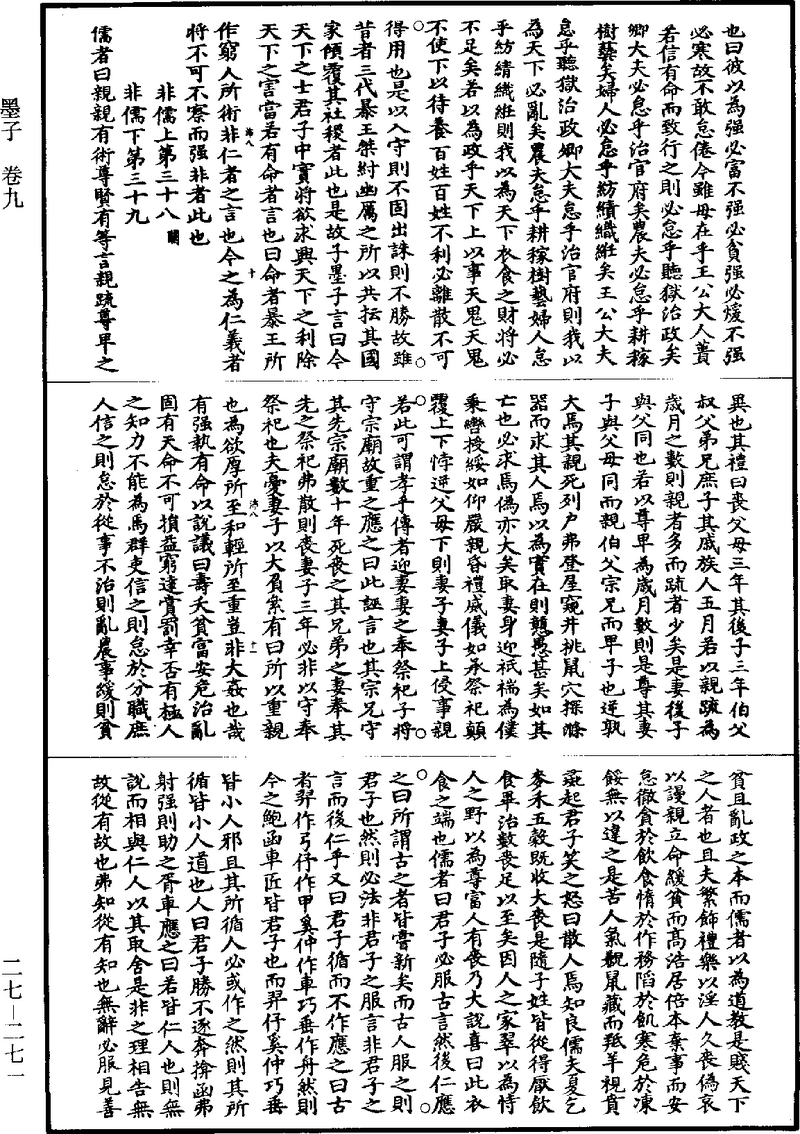 也曰彼以為强必富不强必貧强必煖不强
必寒故不敢怠倦今雖毋在乎王公大人蕢
若信有命而致行之則必怠乎聽獄治政矣
卿大夫必怠乎治官府矣農夫必怠乎耕稼
樹藝矣婦人必怠乎紡績織紝矣王公大夫
怠乎聽獄治政卿大夫怠乎治官府則我以
為天下必亂矣農夫怠乎耕稼樹藝婦人怠
乎紡績織紝則我以為天下衣食之財將必
不足矣若以為政乎天下上以事天鬼天鬼
不使下以待養百姓百姓不利必離散不可
得用也是以入守則不固出誅則不勝故雖
昔者三代暴王桀紂幽厲之所以共抎其國
家傾覆其社稷者此也是故子墨子言曰今
天下之士君子中實將欲求興天下之利除
天下之害當若有命者言也曰命者暴王所
作窮人所術非仁者之言也今之為仁義者
將不可不察而强非者此也
非儒上第三十八 闕
非儒下第三十九
儒者曰親親有術尊賢有等言親疏尊卑之
異也其禮曰喪父母三年其後子三年伯父
叔父弟兄庶子其戚族人五月若以親疏為
歲月之數則親者多而疏者少矣是妻後子
與父同也若以尊卑為歲月數則是尊其妻
子與父母同而親伯父宗兄而卑子也逆孰
大焉其親死列尸弗登屋窺井挑鼠穴探滌
器而求其人焉以為實在則戇愚甚矣如其
亡也必求焉偽亦大矣取妻身迎祗褍為僕
秉轡授綏如仰嚴親昏禮威儀如承祭祀顛
覆上下悖逆父母下則妻子妻子上侵事親
若此可謂孝乎傳者迎妻妻之奉祭祀子將
守宗廟故重之應之曰此誣言也其宗兄守
其先宗廟數十年死喪之其兄弟之妻奉其
先之祭祀弗散則喪妻子三年必非以守奉
祭祀也夫憂妻子以大負絫有曰所以重親
也為欲厚所至和輕所至重豈非大姦也哉
有强執有命以說議曰壽夭貧富安危治亂
固有天命不可損益窮達賞罰幸否有極人
之知力不能為焉群吏信之則怠於分職庶
人信之則怠於從事不治則亂農事緩則貧
貧且亂政之本而儒者以為道教是賤天下
之人者也且夫繁飾禮樂以淫人久喪偽哀
以謾親立命緩貧而高浩居倍本棄事而安
怠徹貪於飲食惰於作務陷於飢寒危於凍
餒無以違之是苦人氣鼸鼠藏而羝羊視賁
彘起君子笑之怒曰散人焉知良儒夫夏乞
麥禾五穀既收大喪是隨子姓皆從得厭飲
食畢治數喪足以至矣因人之家翠以為恃
人之野以為尊富人有喪乃大說喜曰此衣
食之端也儒者曰君子必服古言然後仁應
之曰所謂古之者皆嘗新矣而古人服之則
君子也然則必法非君子之服言非君子之
言而後仁乎又曰君子循而不作應之曰古
者羿作弓伃作甲奚仲作車巧垂作舟然則
今之鮑函車匠皆君子也而羿伃奚仲巧垂
皆小人邪且其所循人必或作之然則其所
循皆小人道也人曰君子勝不逐奔揜函弗
射强則助之胥車應之曰若皆仁人也則無
說而相與仁人以其取舍是非之理相告無
故從有故也弗知從有知也無辭必服見善
墨子 卷九
二七—二七一